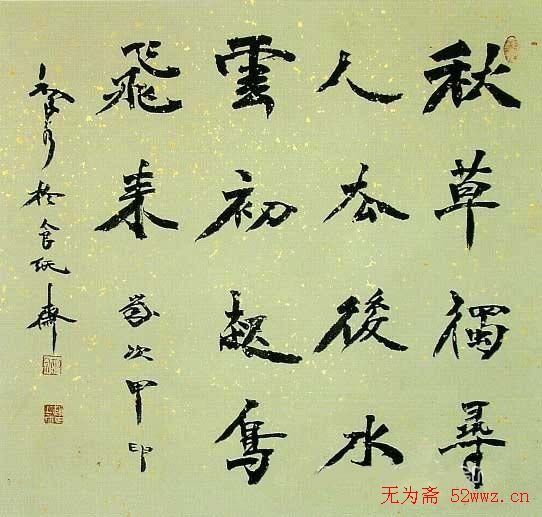 秋草獨尋
人去後水
雲初起鳥
飛来 歲次甲申
於食 齋
无为斋 52wwz.cn